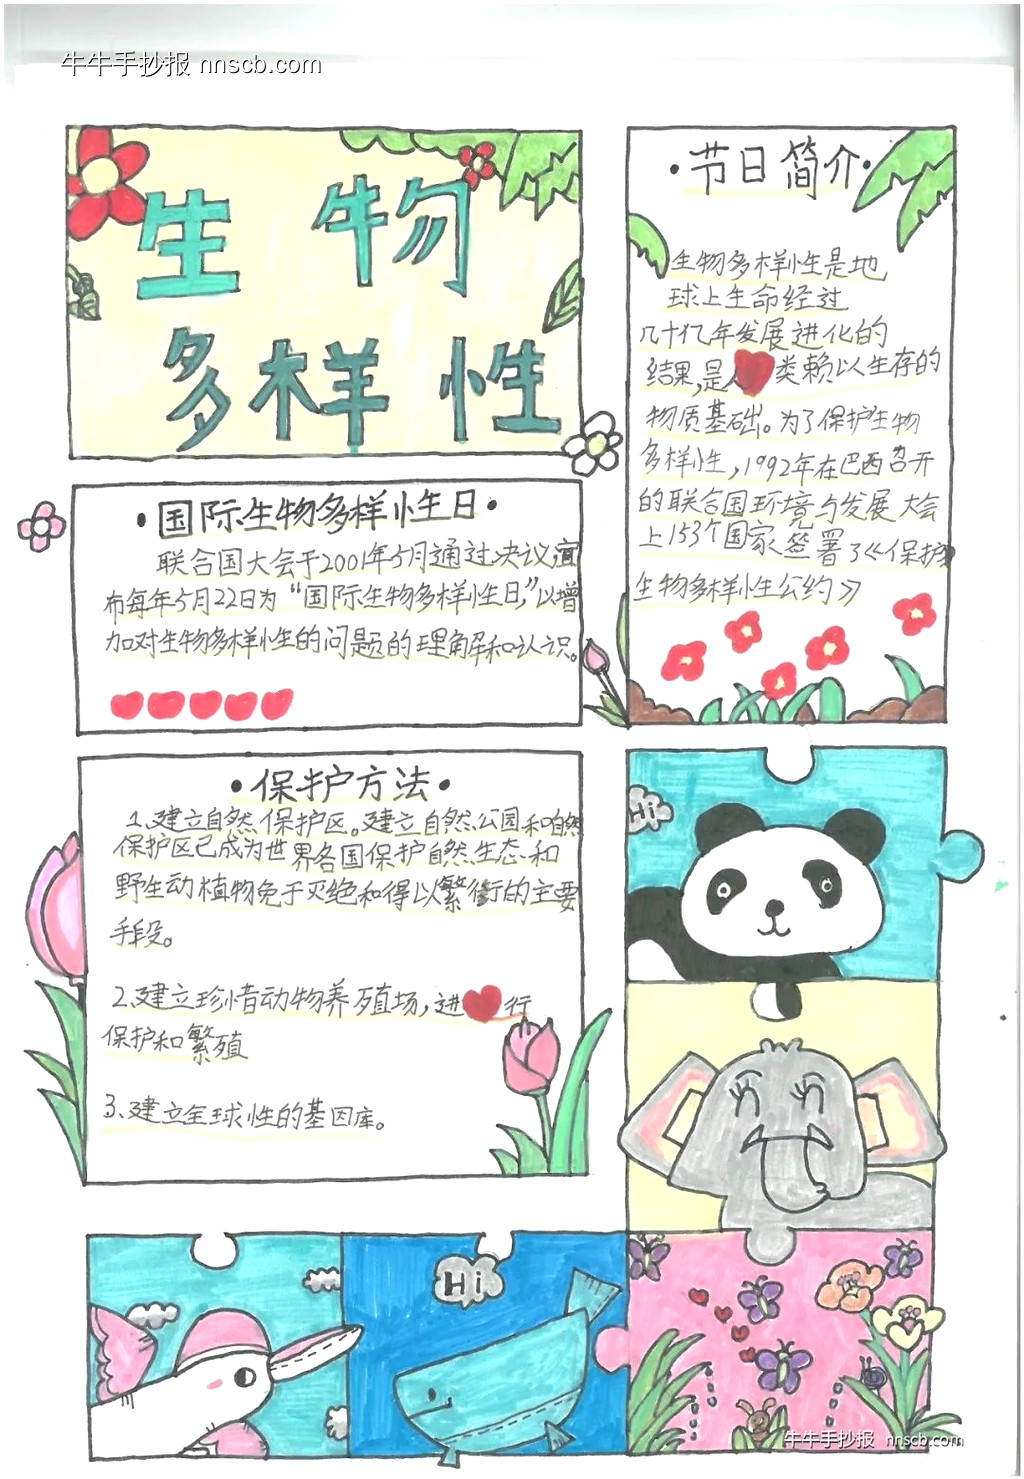 牛牛手抄报 nnscb.com
生物
多样性
·节日简介·
生物多样性是地
球上生命经过
几十亿年发展进化的
结果,是人类赖以生存的
物质基础。为了保护生物
多样性,1992年在巴西召开
的联合国环境与发展大会
上153个国家签署了《保护
生物多样性公约》
·国际生物多样性日·
联合国大会于2001年5月通过决议,宣
布每年5月22日为“国际生物多样性日,”以增
加对生物多样性的问题的理解和认识。
·保护方法·
1、建立自然保护区。建立自然公园和自然
保护区已成为世界各国保护自然生态和
野生动植物免于灭绝和得以繁衍的主要
手段。
2、建立珍惜动物养殖场,进行
保护和繁殖
3、建立全球性的基因库。
Hi
Hi
牛牛手抄报 nnscb.com